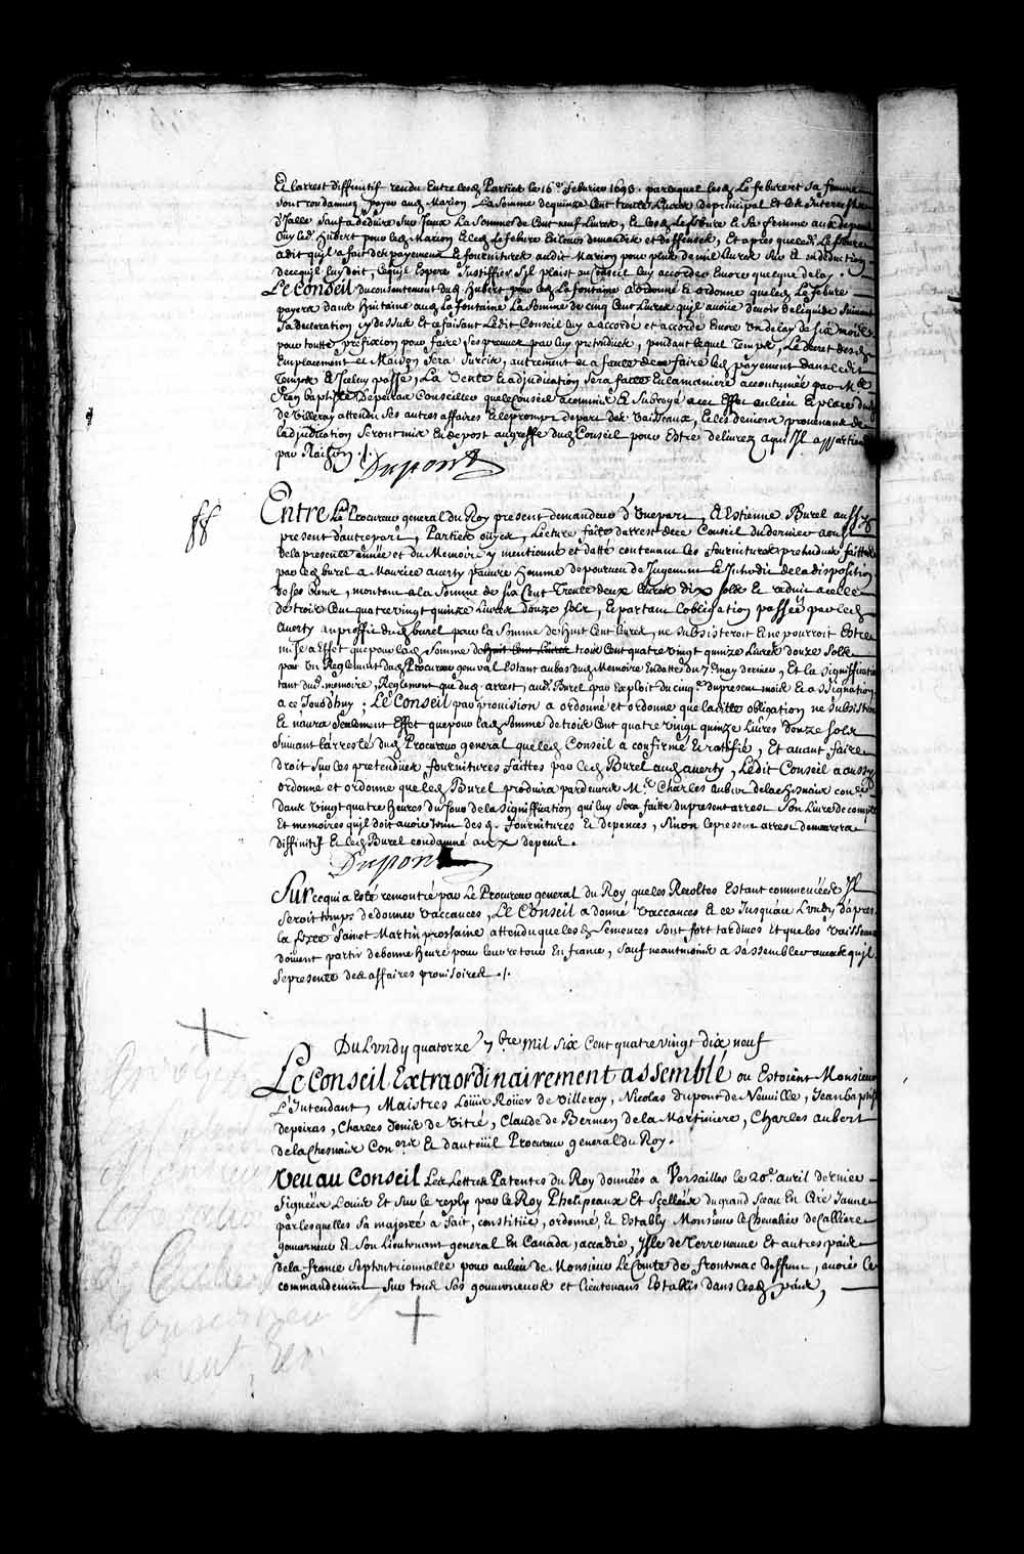 Et larrest diffinitif rendu Entre lesd Parties le 16e febvrier 1693. par lequel lesd Le febvre et sa femme
sont condamnez payer aud Marion La somme de quinze Cent trente Livres de principal et les Interests
sauf a deduire sur Iceux La Somme de Cent neuf Livres, Et lesd Lefebvre Et Sa femme aux depens
Ouy led Hubert pour led Marion Et led Lefebvre En leurs demandes et deffenses, Et apres que led Lefebvre
a dit quil a fait des payemens Et fournitures audit Marion pour plus de mil Livres Sur Et en deduction
de ce quil luy doit, ce quil Espere Justiffier Sil plaist au Conseil luy accorder Encore quelque delay.
Le Conseil du consentement dud Hubert pour led La fontaine a ordonné Et ordonne que led Lefebvre
payera dans Huitaine aud La fontaine La Somme de cinq Cent Livres quil avoüe devoir de liquide Suivant
Sa declaration cy dessus Et ce faisant Ledit Conseil luy a accordé et accorde Encore Un delay de six mois
pour toutte prefixion pour faire Ses preuves par luy pretendües, pendant lequel Temps, Le decret desd
Emplacement et Maison Sera Surcis, autrement et a faute de ce faire led payement dans ledit
Temps Et Iceluy passé, La Vente Et adjudication Sera faite En la maniere accoutumée par Me
Jean baptiste Depeiras Conseiller que le Conseil a commis Et Subrogé a cet Effet au lieu Et place dud
de Villeray attendu Ses autres affaires Et le prompt depart des Vaisseaux, Et les deniers provenans de
ladjudication Seront mis En depost au greffe dud Conseil pour Estre delivrez a qui Il appartiendra
par Raison ./.
Dupont
Entre Le Procureur general du Roy present demandeur d'Une part, Et Estienne Burel aussy
present d'autre part, Parties ouyes, Lecture faite de larrest de ce Conseil du dernier aoust
de la presente année et du Memoire y mentionné et datté contenant les fournitures pretendues faittes
par led burel a Maurice averty pauvre Homme depourveu de Jugement Et Interdit de la disposition
de ses biens, montant a la Somme de six Cent Trente deux livres dix solz Et reduit a celle
de trois Cent quatre vingt quinze Livres douze Solz, Et partant Lobligation passée par led
Averty au proffit dud burel pour la Somme de Huit Cent livres, ne Subsisteroit Et ne pourroit Estre
mise a Effet que pour lad Somme de huit Cent Livres trois Cent quatre vingt quinze Livres douze Solz
par Un Reglement dud Procureur general Estant au bas dud Memoire En datte du 7e may dernier, Et la Signiffication
tant dud memoire, Reglement que dud arrest, aud Burel par Exploit du cinqe du present mois Et assignation
a ce Jourdhuy; Le Conseil par provision a ordonné et ordonne que ladite obligation ne Subsistera
Et n'aura Seulement Effet que pour lad Somme de trois Cent quatre vingt quinze Livres douze solz
Suivant larresté dud Procureur general que led Conseil a confirmé Et ratifié, Et avant faire
droit Sur les pretendües fournitures faittes par led Burel aud averty, Ledit Conseil a aussy
ordonné et ordonne que led Burel produira pardevers Me Charles aubert de la chesnaie coner
dans Vingt quatre Heures du Jour de la Signiffication qui luy Sera faitte du present arrest Son Livre de compte
Et memoires quil doit avoir tenu desd fournitures Et depences, Sinon le present arrest demeurera
diffinitif Et led Burel condamné aux depens.
Dupont
Sur ce qui a Esté remontré par Le Procureur general du Roy que les Recoltes Estant commencées Il
Seroit temps de donner Vaccances, Le Conseil a donné Vaccances Et ce Jusqu'au Lundy d'apres
la feste Sainct Martin prochaine attendu que lesd Semences Sont fort tardives Et que les Vaisseaux
doivent partir de bonne Heure pour leur retour En france, Sauf neantmoins a s'assembler quil
Se presente des affaires provisoires ./.
Du Lundy quatorze 7bre Mil Six Cent quatre vingt dix neuf
Le Conseil Extraordinairement assemblé ou Estoient Monsieur
L'Intendant, Maistres Loüis Roüer de Villeray, Nicolas dupont de Neuville, Jean baptiste
depeiras, Charles Denis de Vitré, Claude de Bermen de la Martiniere, Charles aubert
de la Chesnaie Coners Et dauteüil Procureur general du Roy.
Veu au Conseil Les Lettres Patentes du Roy données a Versailles le 20e avril dernier
Signées Louis Et Sur le reply par le Roy Phelipeaux Et Sçellées du grand Sceau En Cire Jaune
par lesquelles Sa majesté a fait, constitüé, ordonné, Et Estably Monsieur le Chevalier de Calliere
gouverneur Et Son Lieutenant general En Canada, accadie, Isle de Terre neuve Et autres païs
de la france Septentrionnalle pour au lieu de Monsieur Le Comte de frontenac deffunt, avoir Le
commandement Sur tous Ses gouverneurs et Lieutenans Establis dans lesd païs,